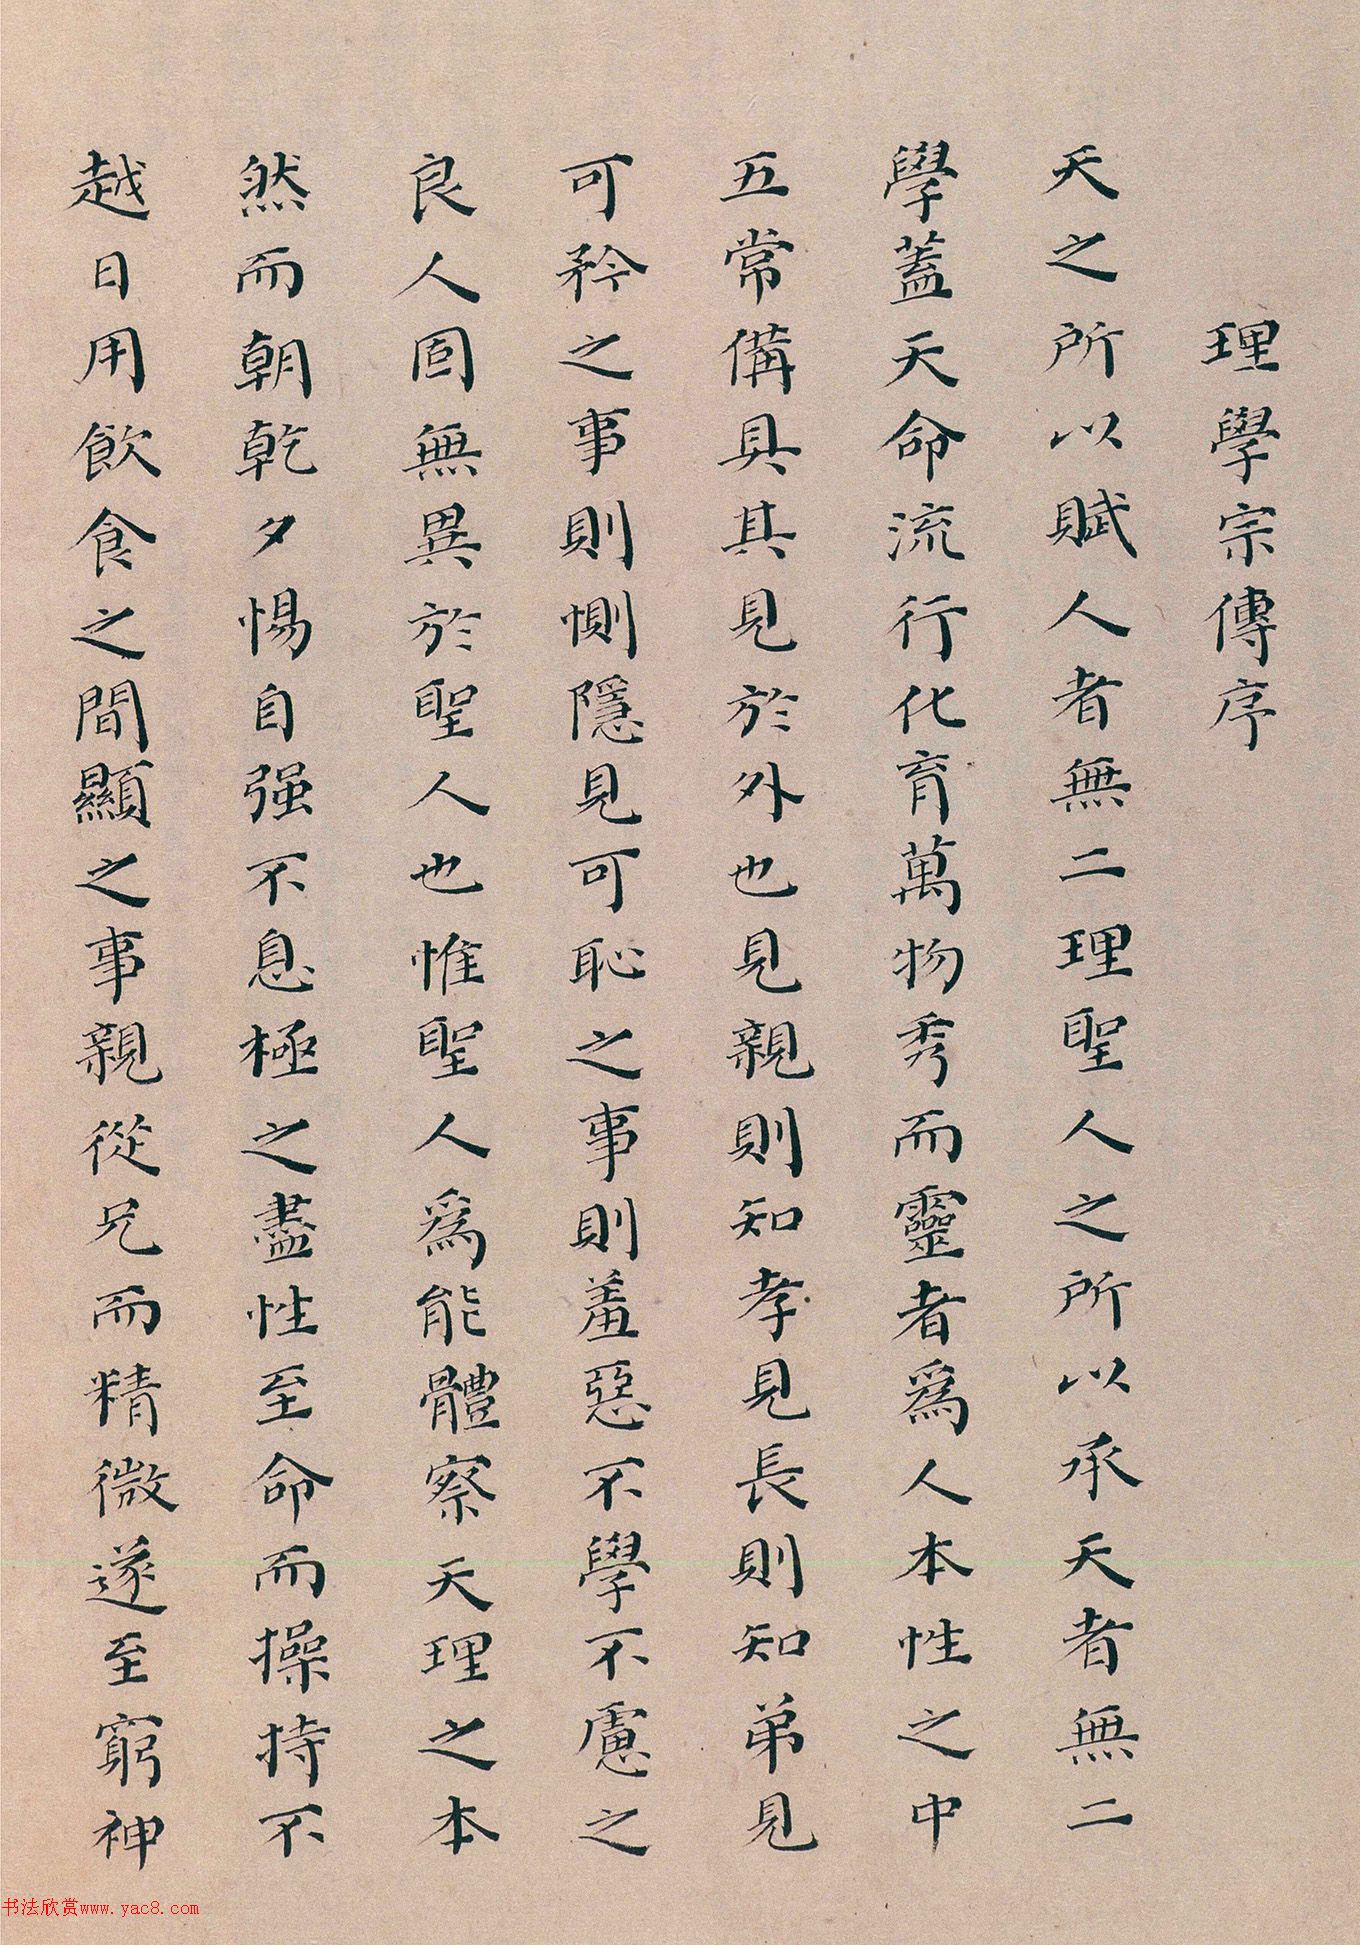 理學宗傳序
天之所以賦人者無二理聖人之所以承天者無二
學蓋天命流行化育萬物秀而靈者爲人本性之中
五常備具其見於外也見親則知孝見長則知弟見
可矜之事則惻隱見可恥之事則羞惡不學不慮之
良人固無異於聖人也惟聖人爲能體察天理之本
然而朝乾夕惕自强不息極之盡性至命而操持不
越日用飲食之間顯之事親從兄而精微遂至窮神
书法欣赏www.yac8.com